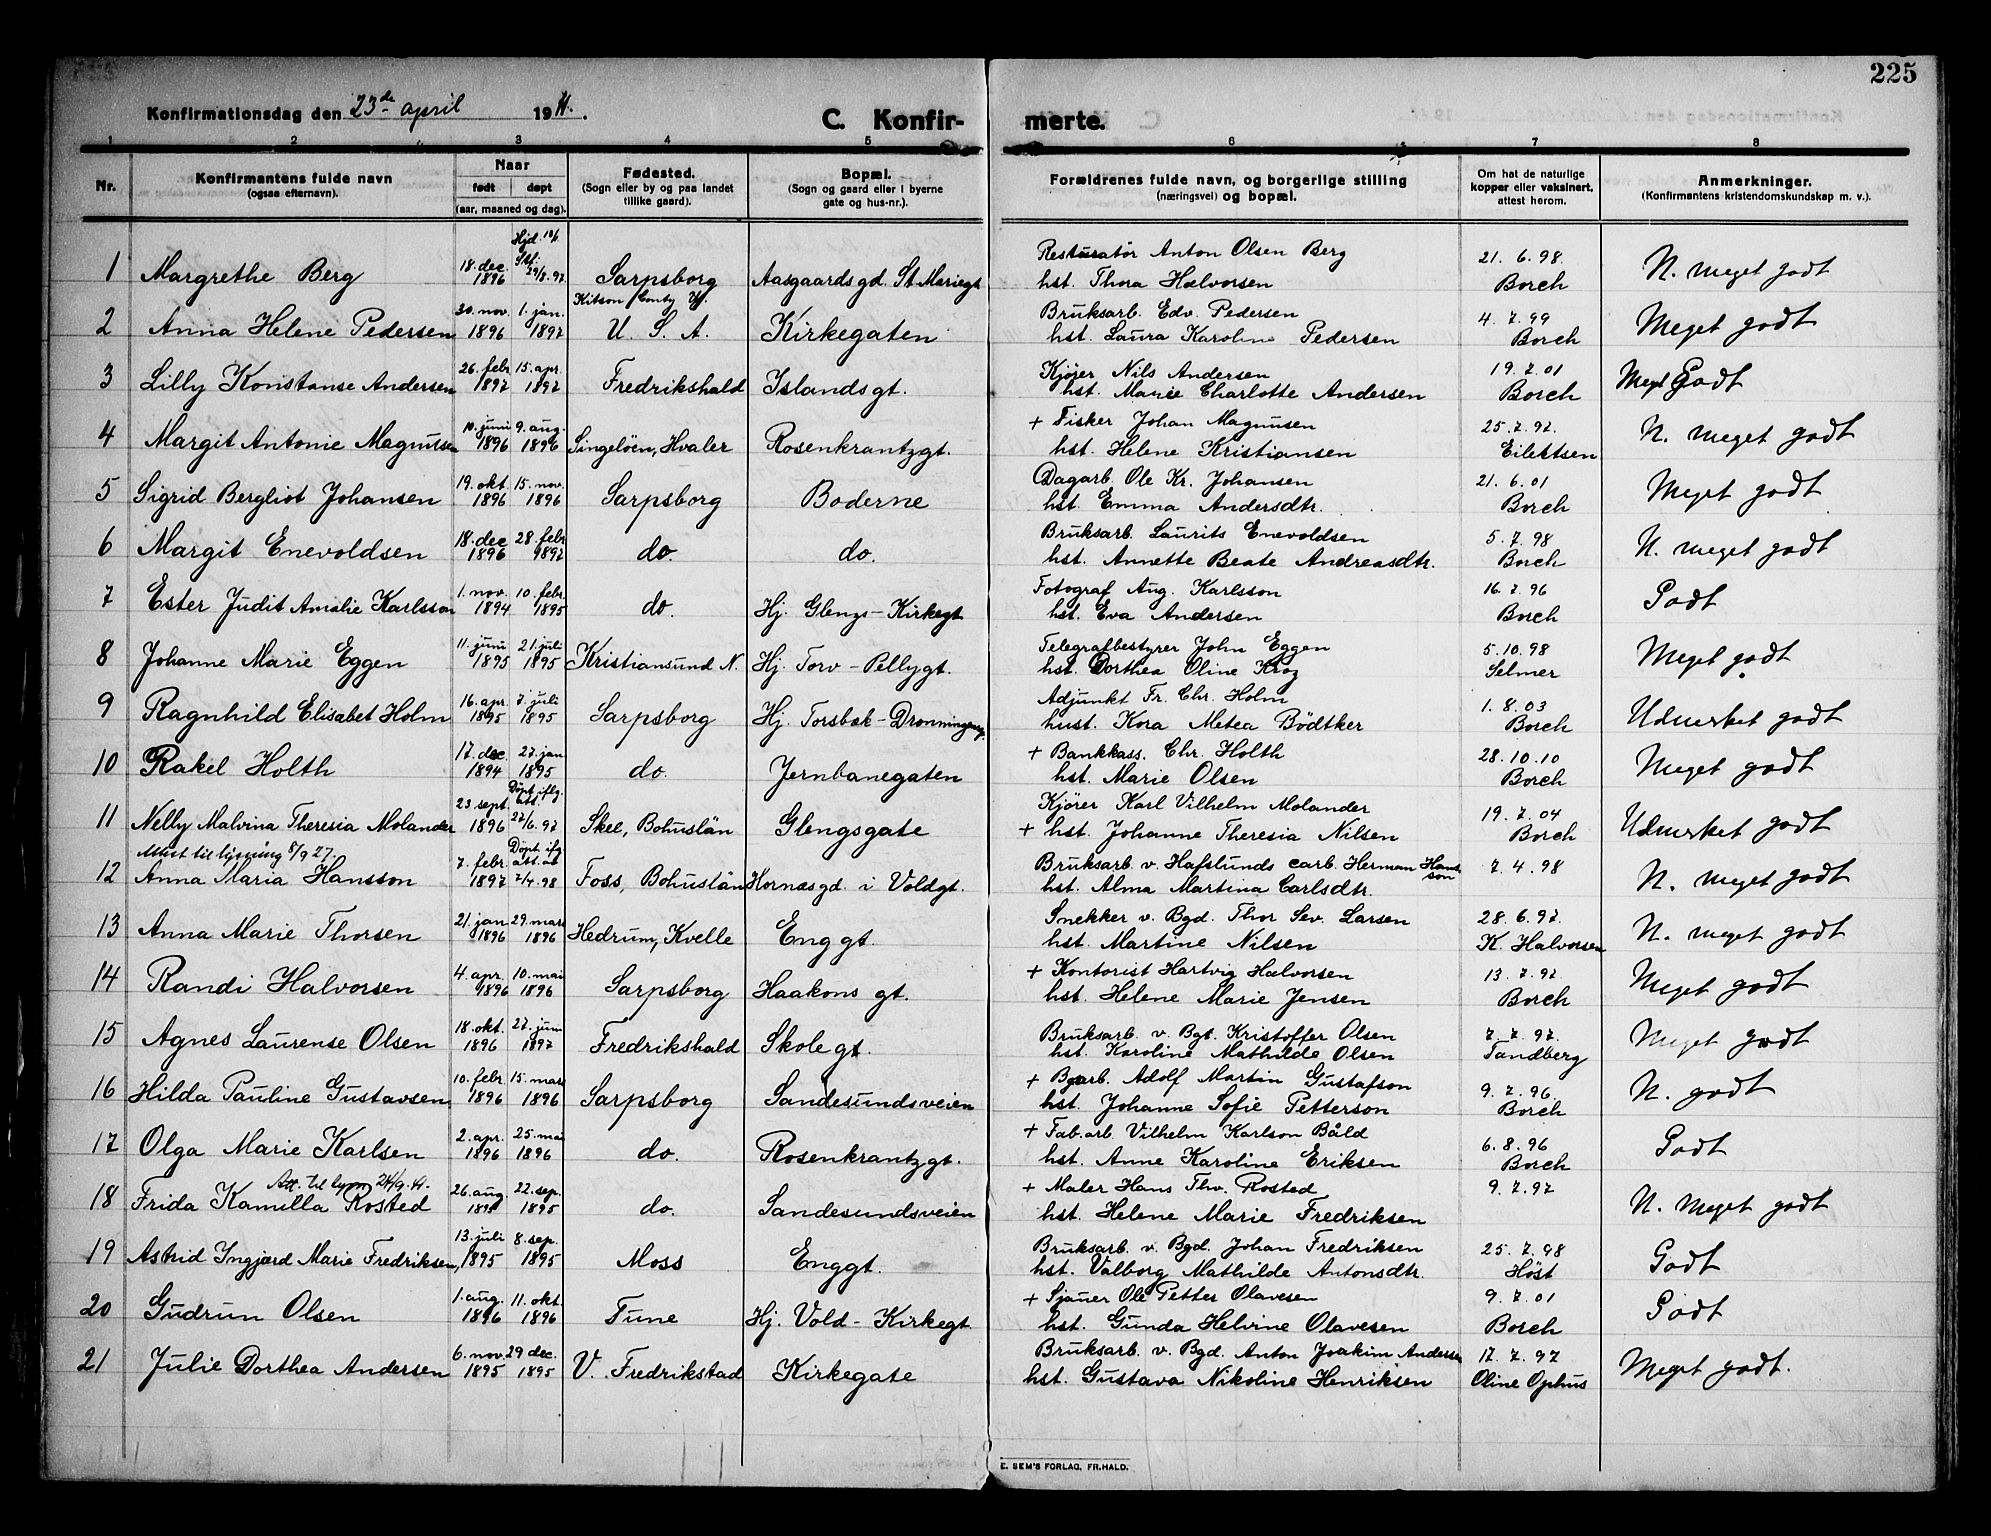 225
Konfirmationsdag den 23de april 1911.
C. Konfirmerte.
1 2 3 4 5 6 7 8
Nr.
Konfirmantens fulde navn
(ogsaa efternavn).
Naar
født døpt
(aar, maaned og dag).
Fødested.
(Sogn eller by og paa landet
tillike gaard).
Bopæl.
(Sogn og gaard eller i byerne
gate og hus-nr.).
Forældrenes fulde navn, og borgerlige stilling
(næringsvei) og bopæl.
Om hat de naturlige
kopper eller vaksinert,
attest herom.
Anmerkninger.
(Konfirmantens kristendomskundskap m. v.).
Hjd. 10/1
Stf.
1 Margrethe Berg 18. dec. 1896 29/8. 97 Sarpsborg Aasgaards gd. St. Mariegt
Resturatør Anton Olsen Berg
hst. Thora Halvorsen
21. 6. 98.
Borch
N. meget godt
Kitson Conty
2 Anna Helene Pedersen 20. nov. 1896 1. jan. 1897 U. S. A. Kirkegaten
Bruksarb. Edv. Pedersen
hst. Laura Karoline Pedersen
4. 7. 99
Borch
Meget godt
3 Lilly Konstanse Andersen 26. febr 1897 15. apr. 1897 Fredrikshald Islandsgt.
Kjører Nils Andersen
hst. Marie Charlotte Andersen
19. 7. 01
Borch
Meget Godt
4 Margit Antonie Magnusen 10. juni 1896 9. aug. 1896 Singeløen, Hvaler Rosenkrantzgt.
+ Fisker Johan Magnusen
hst. Helene Kristiansen
25. 7. 97.
Eilertsen
N. meget godt
5 Sigrid Bergliot Johansen 19. okt. 1896 15. nov. 1896 Sarpsborg Boderne
Dagarb. Ole Kr. Johansen
hst. Emma Andersdtr.
21. 6. 01
Borch
Meget godt
6 Margit Enevoldsen 18. dec 1896 28. febr 1897 do. do.
Bruksarb. Laurits Enevoldsen
hst. Annette Beate Andreasdtr.
5. 7. 98
Borch
N. meget godt
7 Ester Judit Amalie Karlsson 1. nov. 1894 10. febr. 1895 do. Hj. Glengs-Kirkegt
Fotograf Aug. Karlsson
hst. Eva Andersen
16. 7. 96
Borch
Godt
8 Johanne Marie Eggen 11. juni 1895 21. juli 1895 Kristiansund N. Hj. Torv-Pellygt.
Telegrafbestyrer John Eggen
hst. Dorthea Oline Krog
5. 10. 98
Selmer
Meget godt
9 Ragnhild Elisabet Holm 16. apr. 1895 7. juli 1895 Sarpsborg Hj. Torsbæk-Dronningensg
Adjunkt Fr. Chr. Holm
hust. Kora Metea Bödtker
1. 8. 03
Borch
Udmerket godt
10 Rakel Holth 17. dec. 1894 27. jan 1895 do. Jernbanegaten
+ Bankkass. Chr. Holth
hst. Marie Olsen
28. 10. 10
Borch
Meget godt
Döpt iflg. att.
11 Nelly Malvina Theresia Molander 23. sept. 1896 27/6. 97 Skee, Bohuslän Glengsgate
Kjører Karl Vilhelm Molander
+ hst. Johanne Theresia Nilsen
19. 7. 04
Borch
Udmerket godt
Attest til lysning 8/9 27.
Döpt ifg att. at
12 Anna Maria Hansson 7. febr. 1897 7/4. 98 Foss, Bohuslän Hornæsgd. i Voldgt.
Bruksarb. v. Hafslunds carb. Herman Hansson
hst. Alma Martina Carlsdtr.
7. 4. 98
N. meget godt
13 Anna Marie Thorsen 21. jan 1896 29. mars 1896 Hedrum, Kvelle Enggt.
Snekker v. Bgd. Thor Sev. Larsen
hst. Martine Nilsen
28. 6. 97.
K. Halvorsen
N. meget godt
14 Randi Halvorsen 4. apr. 1896 10. mai 1896 Sarpsborg Haakons gt.
+ Kontorist Hartvig Halvorsen
hst. Helene Marie Jensen
13. 7. 97
Borch
Meget godt
15 Agnes Laurense Olsen 18. okt. 1896 27. juni 1897 Fredrikshald Skolegt.
Bruksarb. v. Bgt. Kristoffer Olsen
hst. Karoline Mathilde Olsen
7. 7. 97
Tandberg
Meget godt
16 Hilda Pauline Gustavsen 10. febr. 1896 15. mars 1896 Sarpsborg Sandesundsveien
+ Bgarb. Adolf Martin Gustafson
hst. Johanne Sofie Petterson
9. 7. 96.
Borch
N. godt
17 Olga Marie Karlsen 2. apr. 1896 25. mai 1896 do. Rosenkrantzgt.
+ Fab.arb. Vilhelm Karlson Båld
hst. Anne Karoline Eriksen
6. 8. 96
Borch
Godt
Att. til
18 Frida Kamilla Rosted 26. aug. 1895 22. sep. 1895 do. Sandesundsveien
+ Maler Hans Thv. Rosted
hst. Helene Marie Fredriksen
9. 7. 97
N. Meget godt
19 Astrid Ingjærd Marie Fredriksen, 13. juli 1895 8. sep. 1895 Moss Enggt.
Bruksarb. v. Bgd. Johan Fredriksen
hst. Valborg Mathilde Antonsdtr.
25. 7. 98
Höst
Godt
20 Gudrun Olsen 1. aug. 1896 11. okt. 1896 Tune Hj. Vold-Kirkegt.
+ Sjauer Ole Petter Olavesen
hst. Gunda Helvine Olavesen
9. 7. 01
Borch
Godt
21 Julie Dorthea Andersen 6. nov. 1895 29 dec. 1895 V. Fredrikstad Kirkegate
Bruksarb. v. Bgd. Anton Joakim Andersen
hst. Gustava Nikoline Henriksen
17. 7. 97
Oline Ophus
Meget godt.
E. SEM'S FORLAG, FR.HALD.